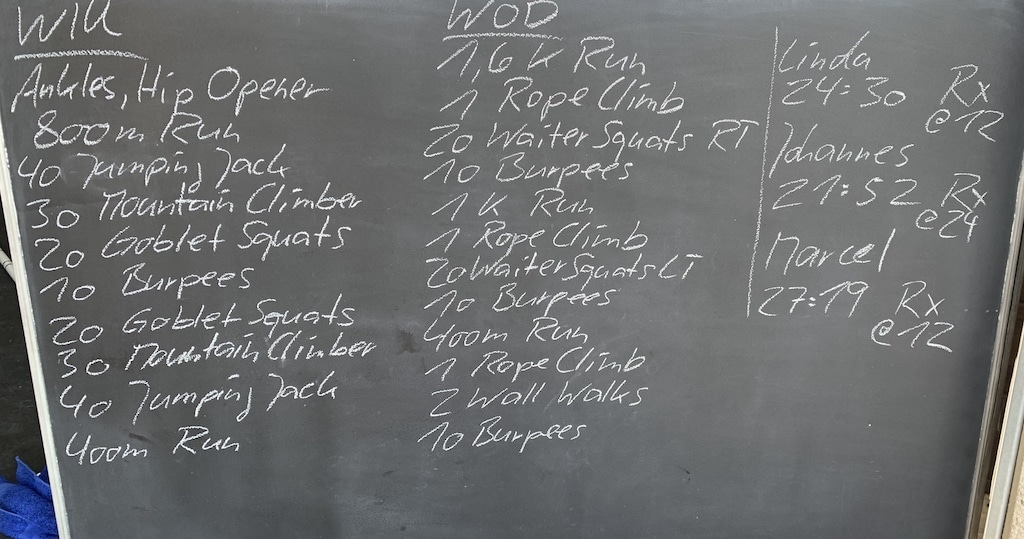 WU
Ankles, Hip Opener
800m Run
40 Jumping Jack
30 Mountain Climber
20 Goblet Squats
10 Burpees
20 Goblet Squats
30 Mountain Climber
40 Jumping Jack
400m Run
WOD
1,6 K Run
1 Rope Climb
20 Waiter Squats RT
10 Burpees
1 K Run
1 Rope Climb
20 Waiter Squats LT
10 Burpees
400m Run
1 Rope Climb
2 Wall Walks
10 Burpees
Linda
24:30 Rx
@12
Johannes
21:52 Rx
@24
Marcel
27:19 Rx
@12